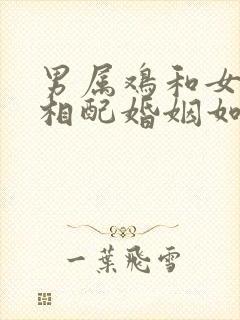 男属鸡和女
相配婚姻如
一葉飛雪